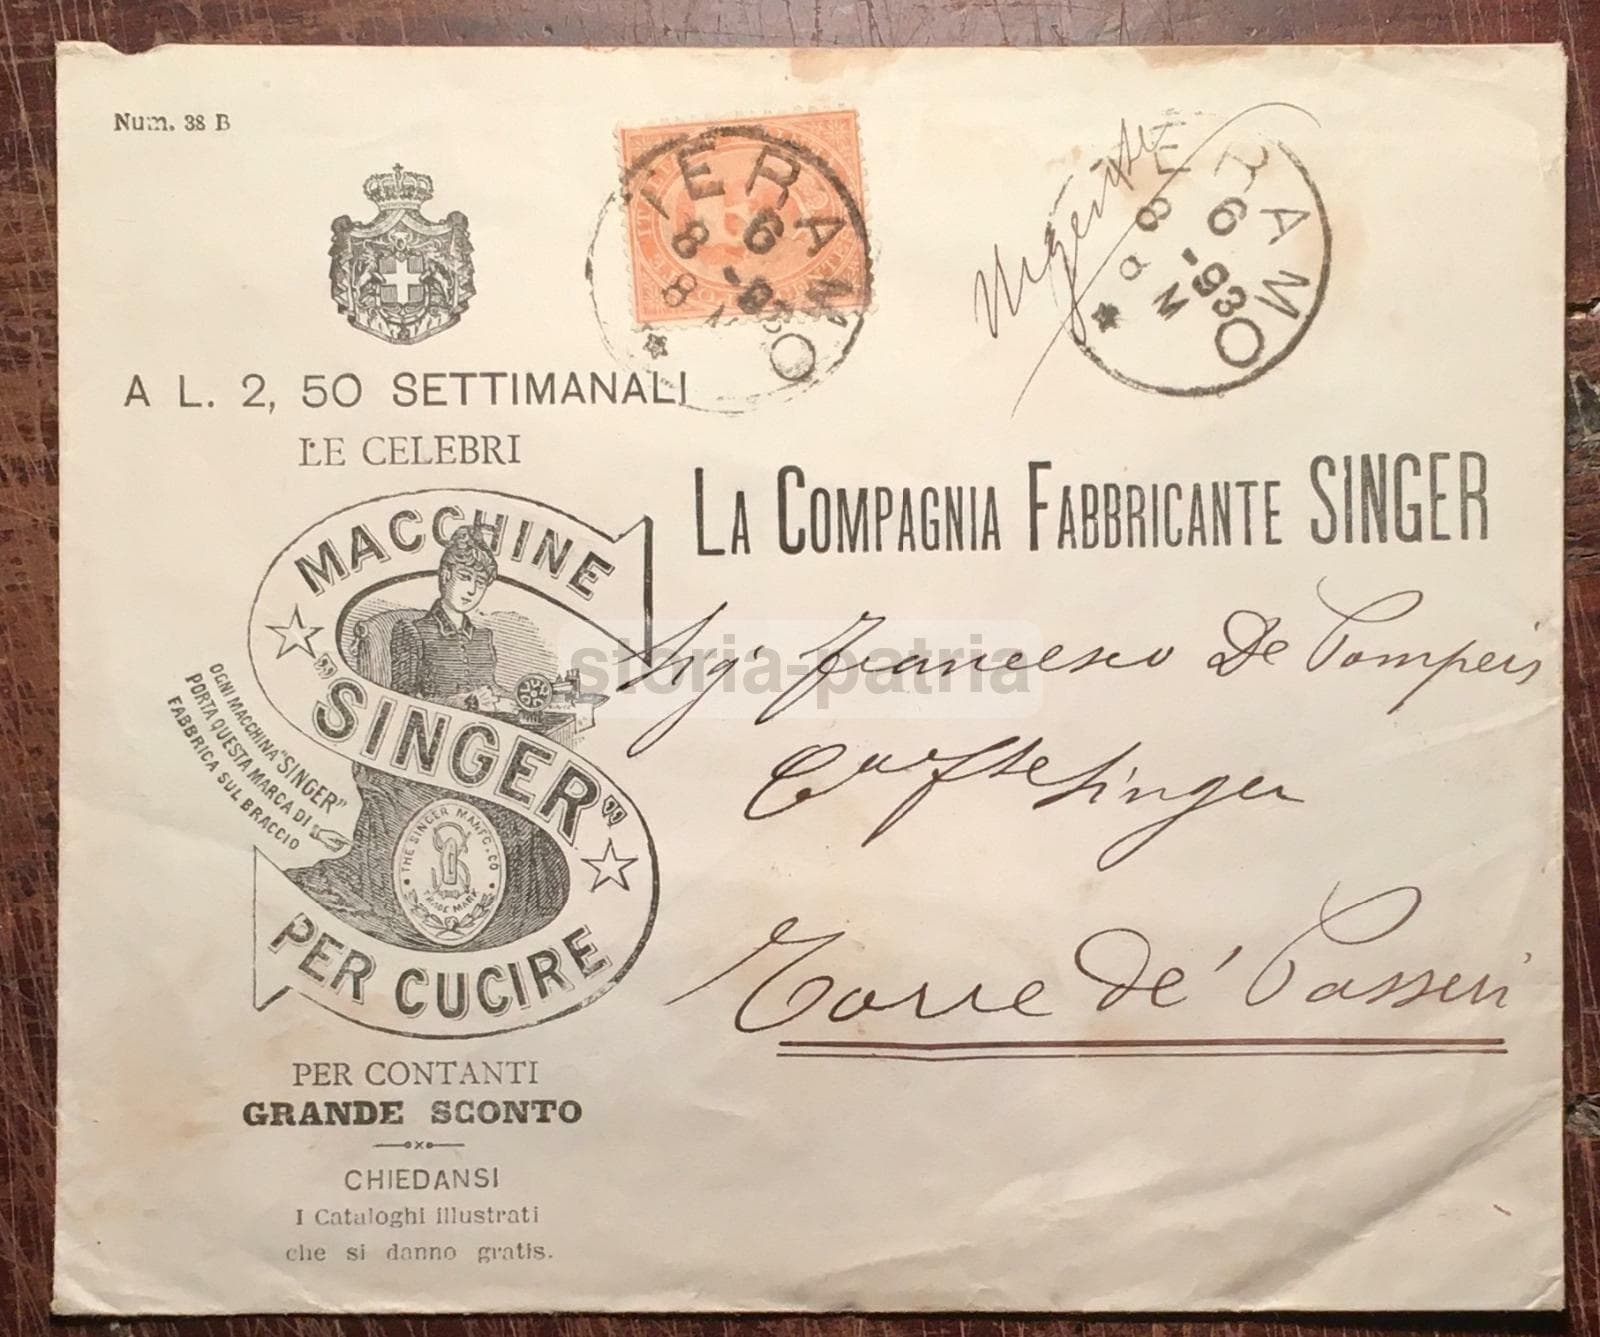 Num. 38 B
TERAMO
8 6 -93
8 M
Urgente
TERAMO
8 6 -93
8 M
A L. 2, 50 SETTIMANALI
LE CELEBRI
MACCHINE
"SINGER"
PER CUCIRE
OGNI MACCHINA "SINGER"
PORTA QUESTA MARCA DI
FABBRICA SUL BRACCIO
THE SINGER MANFG. CO
TRADE MARK
LA COMPAGNIA FABBRICANTE SINGER
Sig. Francesco De Pompeis
Singer
Torre de' Passeri
PER CONTANTI
GRANDE SCONTO
CHIEDANSI
I Cataloghi illustrati
che si danno gratis.
storia-patria